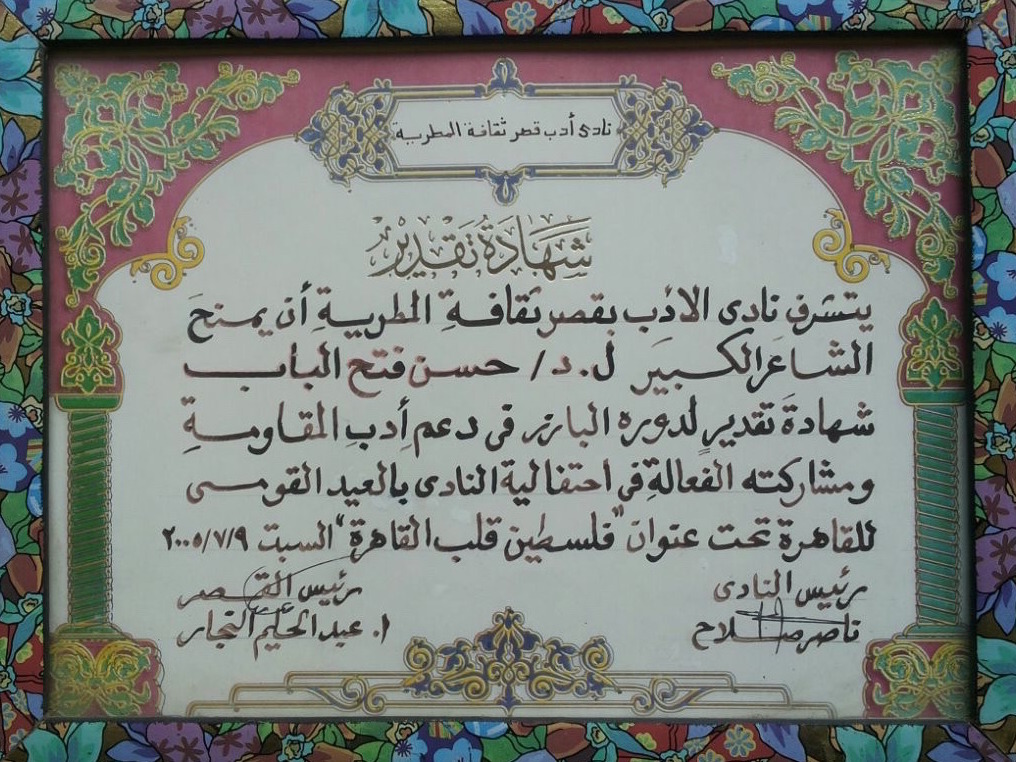 نادى أدب قصر ثقافة المطرية
شَهَادَةُ تَقَدِير
يتشرف نادى الأدب بقصر ثقافةِ المطريةِ أن يمنحَ
الشاعرَ الكبيرَ ل.د/ حسن فتح الباب
شهادةَ تقديرٍ لدوره البارز فى دعم أدبِ المقاومةِ
ومشاركته الفعالةِ فى احتفالية النادى بالعيد القومى
للقاهرة تحت عنوان "فلسطين قلب القاهرة" السبت ٢٠٠٥/٧/٩
رئيس النادى رئيس القصر
ناصر صلاح ا. عبد الحليم النجار